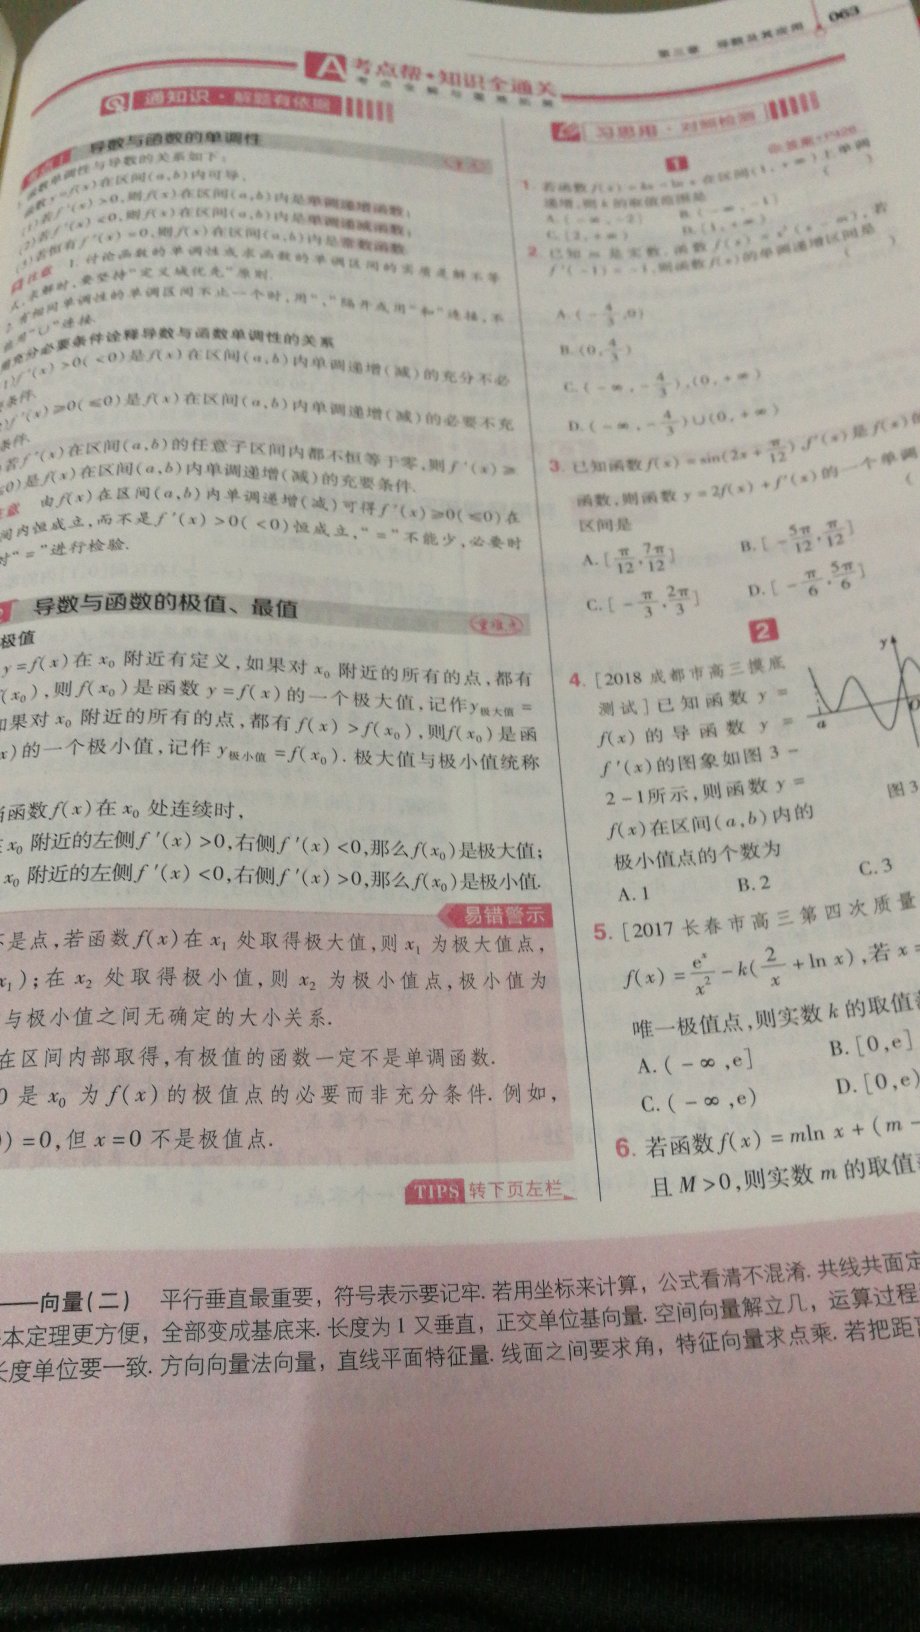 第三章 导数及其应用 063
A 考点帮·知识全通关
考点全解与重难拓展
通知识·解题有依据
考点1 导数与函数的单调性
函数单调性与导数的关系如下:
函数y=f(x)在区间(a,b)内可导,
(1)若f′(x)>0,则f(x)在区间(a,b)内是单调递增函数;
(2)若f′(x)<0,则f(x)在区间(a,b)内是单调递减函数;
(3)若恒有f′(x)=0,则f(x)在区间(a,b)内是常数函数.
注意 1.讨论函数的单调性或求函数的单调区间的实质是解不等
式,求解时,要坚持“定义域优先”原则.
2.有相同单调性的单调区间不止一个时,用“,”隔开或用“和”连接,不
能用“∪”连接.
充分必要条件诠释导数与函数单调性的关系
f′(x)>0(<0)是f(x)在区间(a,b)内单调递增(减)的充分不必
要条件.
f′(x)≥0(≤0)是f(x)在区间(a,b)内单调递增(减)的必要不充
分条件.
若f′(x)在区间(a,b)的任意子区间内都不恒等于零,则f′(x)≥
≤0)是f(x)在区间(a,b)内单调递增(减)的充要条件.
注意 由f(x)在区间(a,b)内单调递增(减)可得f′(x)≥0(≤0)在
间内恒成立,而不是f′(x)>0(<0)恒成立,“=”不能少,必要时
对“=”进行检验.
导数与函数的极值、最值 重难点
极值
y=f(x)在x₀附近有定义,如果对x₀附近的所有的点,都有
(x₀),则f(x₀)是函数y=f(x)的一个极大值,记作y极大值=
如果对x₀附近的所有的点,都有f(x)>f(x₀),则f(x₀)是函
x)的一个极小值,记作y极小值=f(x₀).极大值与极小值统称
当函数f(x)在x₀处连续时,
在x₀附近的左侧f′(x)>0,右侧f′(x)<0,那么f(x₀)是极大值;
x₀附近的左侧f′(x)<0,右侧f′(x)>0,那么f(x₀)是极小值.
易错警示
不是点,若函数f(x)在x₁处取得极大值,则x₁为极大值点,
x₁);在x₂处取得极小值,则x₂为极小值点,极小值为
与极小值之间无确定的大小关系.
在区间内部取得,有极值的函数一定不是单调函数.
0是x₀为f(x)的极值点的必要而非充分条件.例如,
)=0,但x=0不是极值点.
TIPS 转下页左栏
习思用·对照检测
答案·P426
1
1.若函数f(x)=kx-ln x在区间(1,+∞)上单调
递增,则k的取值范围是 ( )
A.(-∞,-2] B.(-∞,-1]
C.[2,+∞) D.[1,+∞)
2.已知m是实数,函数f(x)=x²(x-m),若
f′(-1)=-1,则函数f(x)的单调递增区间是
( )
A.(-4/3,0)
B.(0,4/3)
C.(-∞,-4/3),(0,+∞)
D.(-∞,-4/3)∪(0,+∞)
3.已知函数f(x)=sin(2x+π/12),f′(x)是f(x)的
函数,则函数y=2f(x)+f′(x)的一个单调
区间是 (
A.[π/12,7π/12] B.[-5π/12,π/12]
C.[-π/3,2π/3] D.[-π/6,5π/6]
2
4.[2018成都市高三摸底
测试]已知函数y=
f(x)的导函数y=
f′(x)的图象如图3-
2-1所示,则函数y=
f(x)在区间(a,b)内的
极小值点的个数为
A.1 B.2 C.3
y
a
O
图3
5.[2017长春市高三第四次质量
f(x)=eˣ/x²-k(2/x+ln x),若x=
唯一极值点,则实数k的取值范
A.(-∞,e] B.[0,e]
C.(-∞,e) D.[0,e)
6.若函数f(x)=mln x+(m-
且M>0,则实数m的取值范
——向量(二) 平行垂直最重要,符号表示要记牢.若用坐标来计算,公式看清不混淆.共线共面定
本定理更方便,全部变成基底来.长度为1又垂直,正交单位基向量.空间向量解立几,运算过程
长度单位要一致.方向向量法向量,直线平面特征量.线面之间要求角,特征向量求点乘.若把距